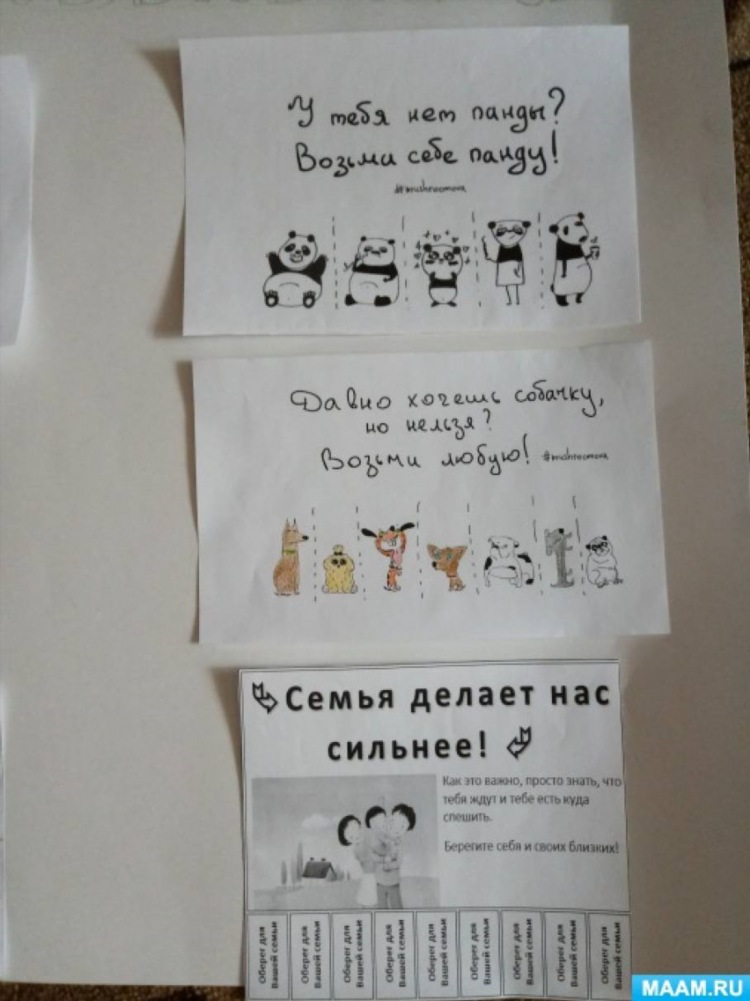 У тебя нет панды?
Возьми себе панду!
Давно хочешь собачку,
но нельзя?
Возьми любую!
Семья делает нас
сильнее!
Как это важно, просто знать, что
тебя ждут и тебе есть куда
спешить.
Берегите себя и своих близких!
Оберег для
Вашей семьи
Оберег для
Вашей семьи
Оберег для
Вашей семьи
Оберег для
Вашей семьи
Оберег для
Вашей семьи
Оберег для
Вашей семьи
Оберег для
Вашей семьи
Оберег для
Вашей семьи
Оберег для
Вашей семьи
MAAM.RU